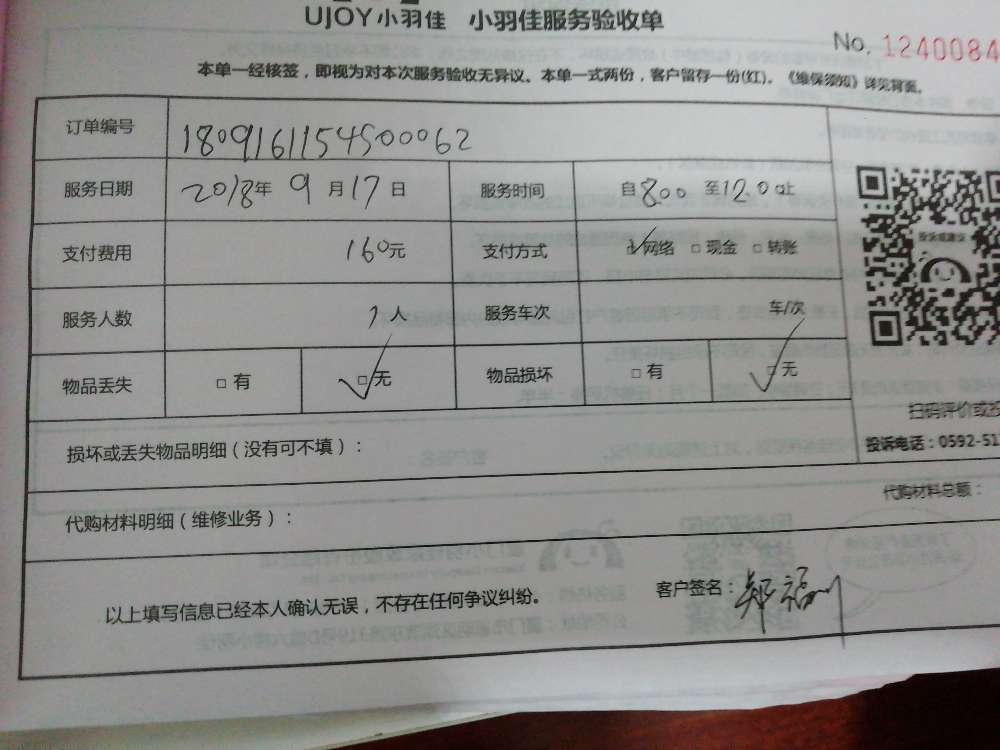 UJOY小羽佳 小羽佳服务验收单
No. 1240084
本单一经核签，即视为对本次服务验收无异议。本单一式两份，客户留存一份(红)。《维保须知》详见背面。
订单编号 1809161154500062
服务日期 2018年 9 月 17 日 服务时间 自 800 至 12.00 止
支付费用 160元 支付方式 ☑网络 □现金 □转账
服务人数 1 人 服务车次 车/次
物品丢失 □有 ☑无 物品损坏 □有 ☑无
投诉或建议
扫码评价或投
投诉电话：0592-51
损坏或丢失物品明细（没有可不填）：
代购材料明细（维修业务）： 代购材料总额：
以上填写信息已经本人确认无误，不存在任何争议纠纷。 客户签名：郑福川